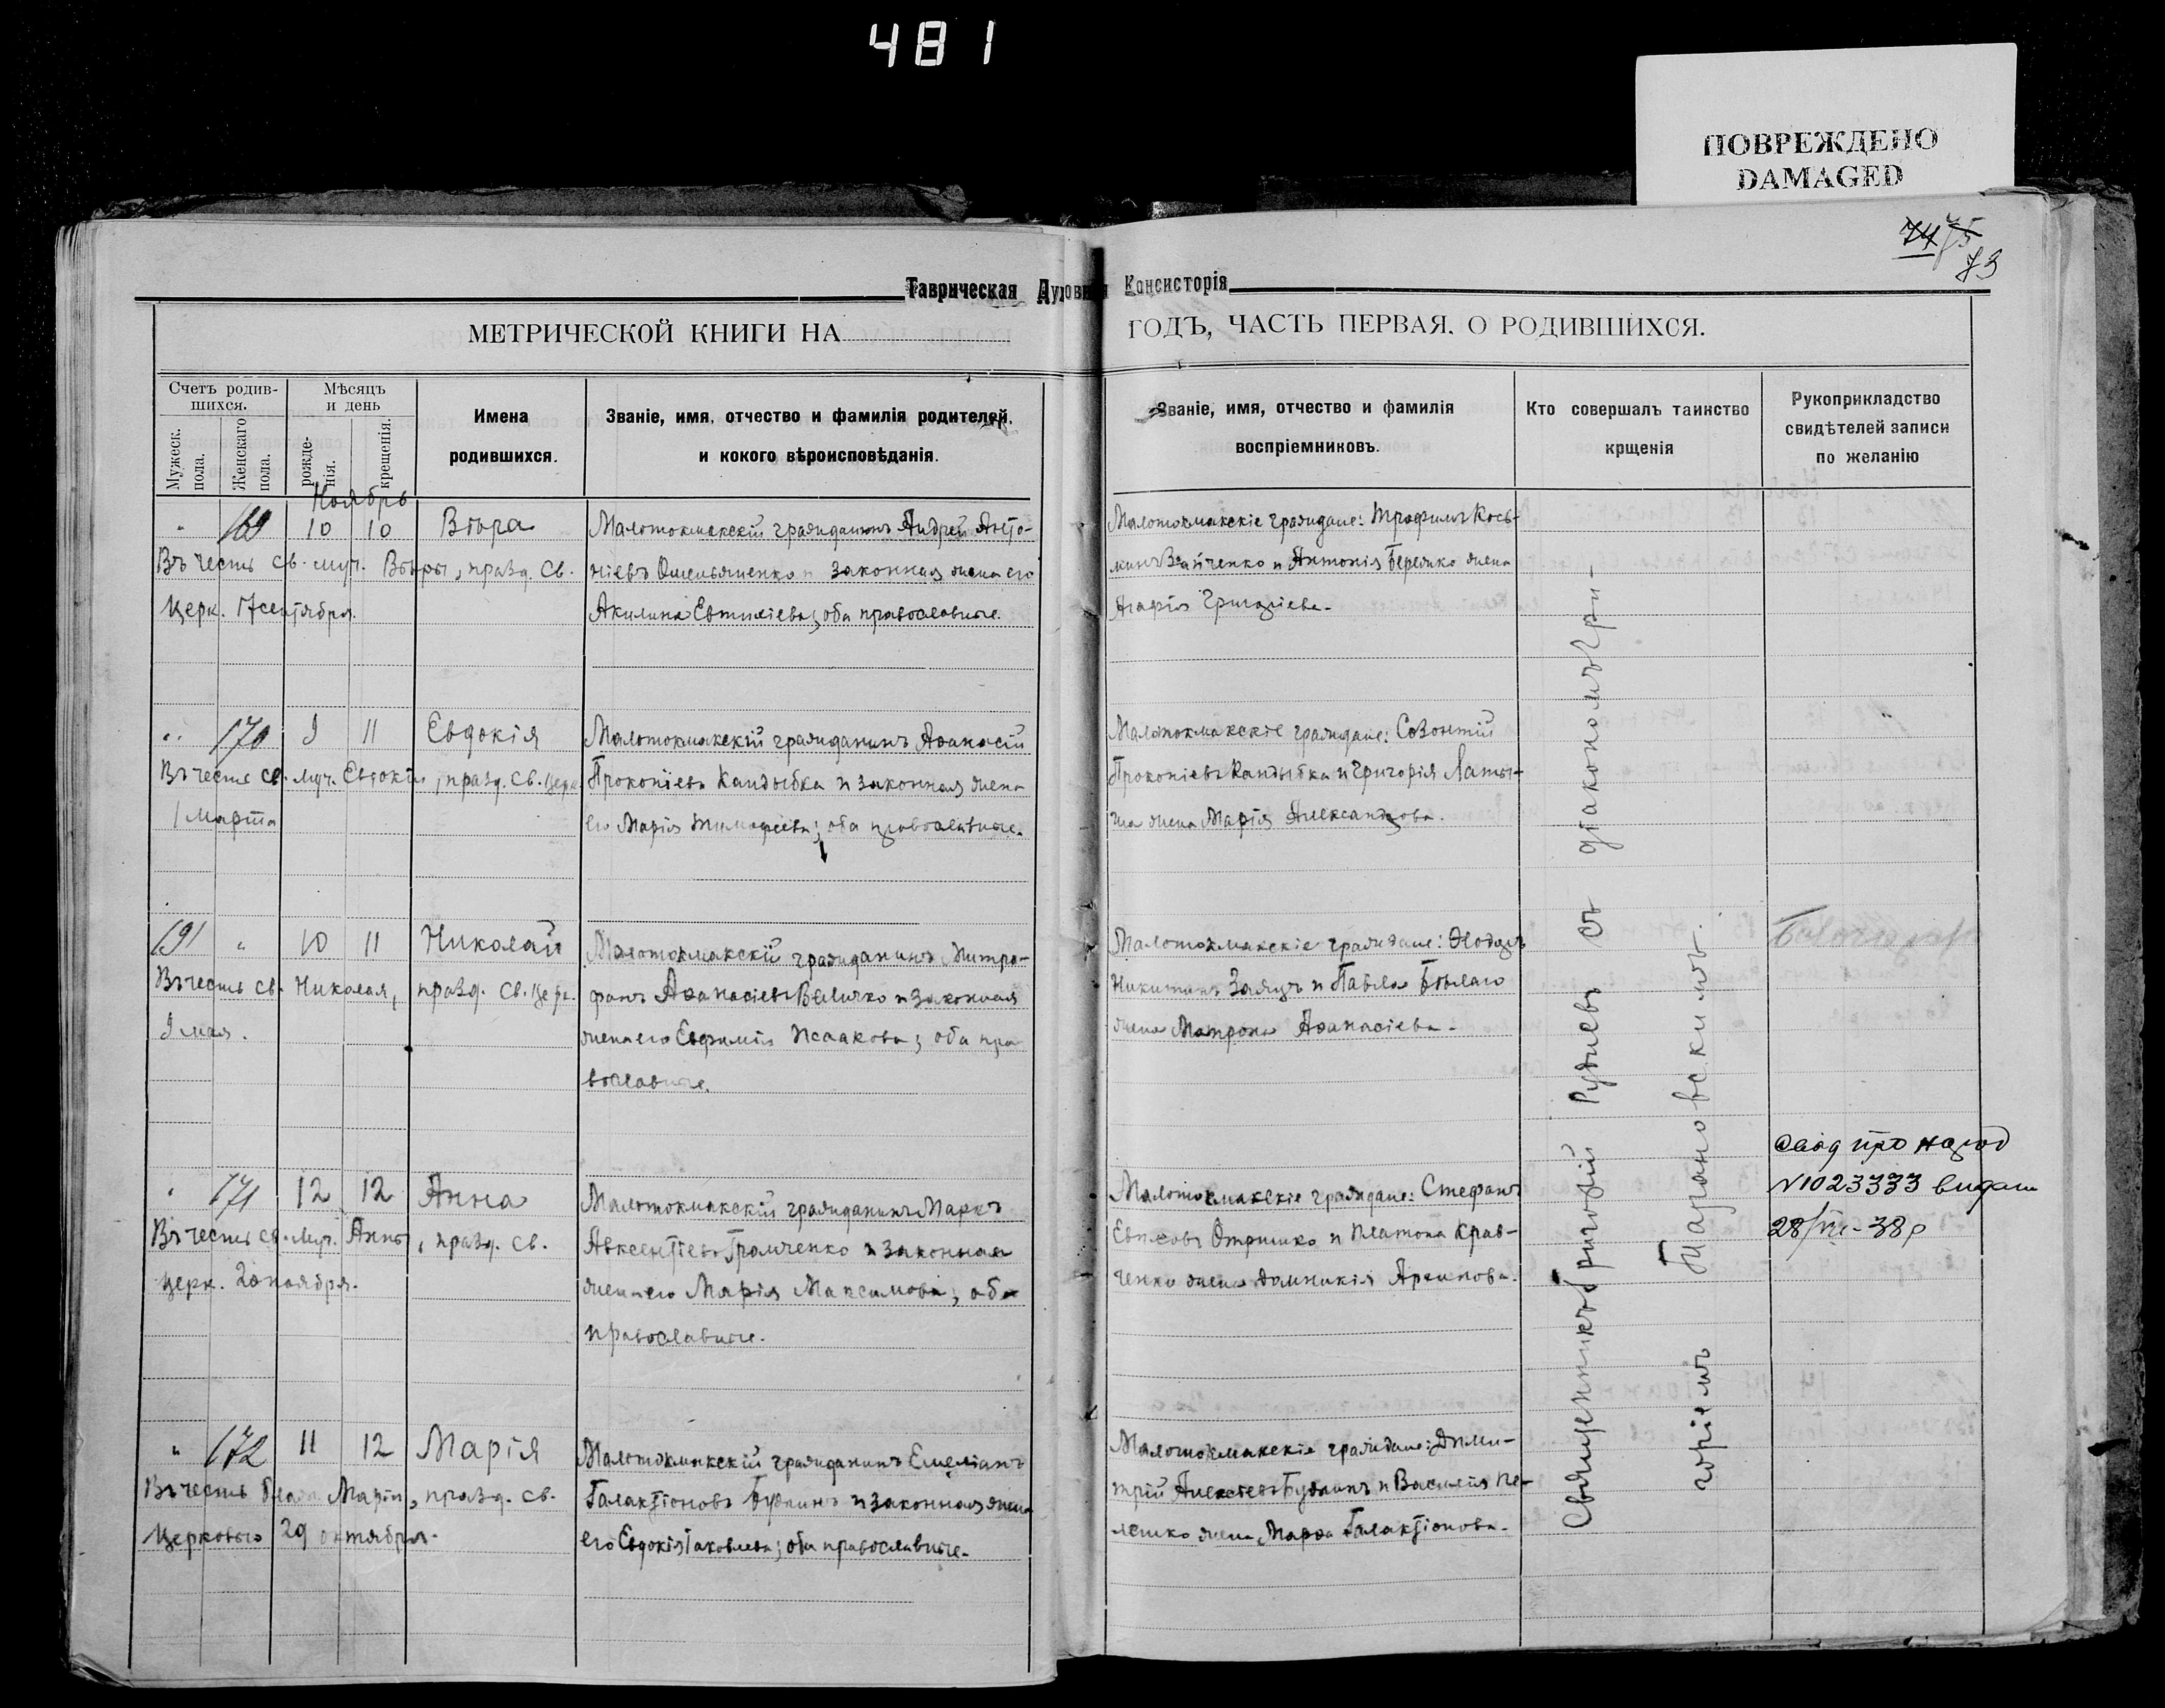 481
ПОВРЕЖДЕНО
DAMAGED
74 75
73
Таврическая Духовная Консисторія
МЕТРИЧЕСКОЙ КНИГИ НА ГОДЪ, ЧАСТЬ ПЕРВАЯ. О РОДИВШИХСЯ.
Счетъ родив-
шихся.
Мужеск.
пола.
Женскаго
пола.
Мѣсяцъ
и день
рожде-
нія.
крещенія.
Имена
родившихся.
Званіе, имя, отчество и фамилія родителей,
и кокого вѣроисповѣданія.
Званіе, имя, отчество и фамилія
воспріемниковъ.
Кто совершалъ таинство
крщенія
Рукоприкладство
свидѣтелей записи
по желанію
Ноябрь
" 169 10 10 Вѣра
Въ честь св. муч. Вѣры, празд. св.
церк. 17 сентября.
Малотокмакскій гражданинъ Андрей Анто-
ніевъ Омельяненко и законная жена его
Акилина Евтихіева; оба православные.
Малотокмакскіе граждане: Трофимъ Кось-
минъ Зайченко и Антонія Бережко жена
Агафія Григоріева.
" 170 9 11 Евдокія
Въ честь св. муч. Евдокіи, празд. св. церк.
1 марта
Малотокмакскій гражданинъ Аѳанасій
Прокопіевъ Кандыбка и законная жена
его Марія Тимофеева; оба православные.
Малотокмакскіе граждане: Созонтій
Прокопіевъ Кандыбка и Григорія Латы-
ша жена Марія Александрова.
191 " 10 11 Николай
Въ честь св. Николая, празд. св. церк.
9 мая.
Малотокмакскій гражданинъ Митро-
фанъ Аѳанасіевъ Величко и законная
жена его Евфимія Исаакова; оба пра-
вославные.
Малотокмакскіе граждане: Ѳеодоръ
Никитинъ Заяцъ и Павла Бѣлаго
жена Матрона Аѳанасіева.
" 171 12 12 Анна
Въ честь св. муч. Анны, празд. св.
церк. 20 ноября.
Малотокмакскій гражданинъ Маркъ
Авксентіевъ Громченко и законная
жена его Марія Максимова; оба
православные.
Малотокмакскіе граждане: Стефанъ
Отришко и Платона Крав-
ченко жена Домникія
свід про народ
N1023333 видан
28/VII-38р
" 172 11 12 Марія
Въ честь Марія, празд. св.
Церковью 29 октября.
Малотокмакскій гражданинъ Емеліанъ
Галактіоновъ Будаинъ и законная жена
его Евдокія Іаковлева; оба православные.
Малотокмакскіе граждане: Дими-
трій Алексѣевъ Будаинъ и Василія Пе-
лешко жена Марѳа Галактіонова.
Священникъ Григорій Рудневъ съ діакономъ Гри-
горіемъ Тарановскимъ.